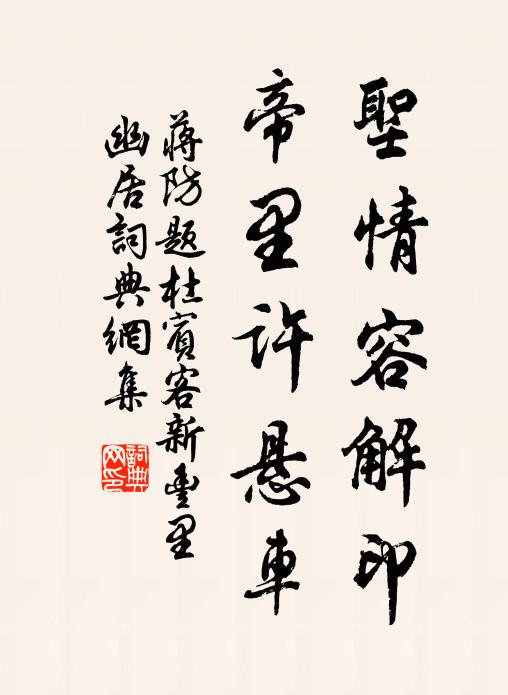 聖情容解印
帝里許悬車
蔣防題杜賓客新豊里
幽居詞典網集
詞典
网印